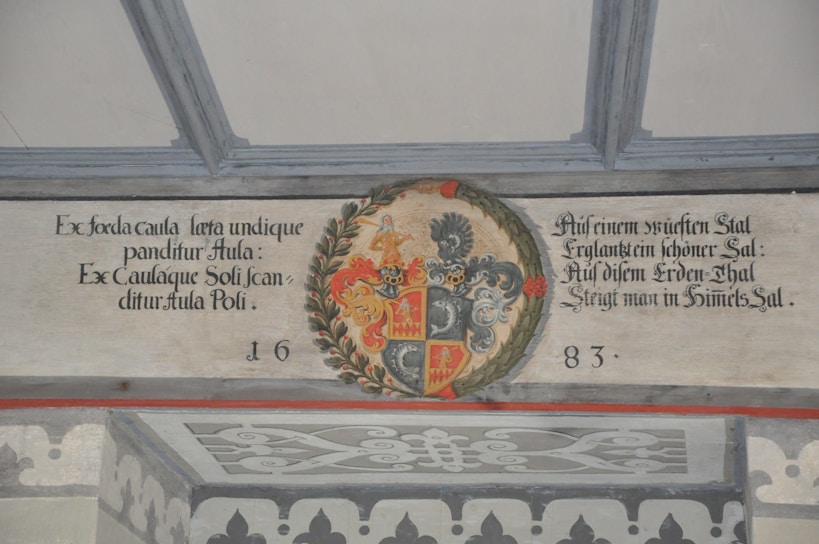 Ex fœda caula læta undique
panditur Aula:
Ex Caulâque Soli scan=
ditur Aula Poli.
Auß einem wüesten Stal
Erglantzt ein schöner Sal:
Auß disem Erden=Thal
Steigt man in Him̄els Sal.
16 83.